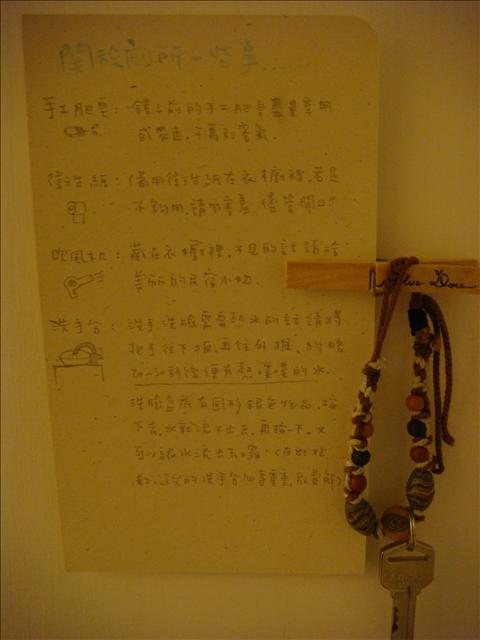 關於廁所一些事......
手工肥皂：鏡子前的手工肥皂盡量享用
或帶走，千萬別客氣。
衛生紙：備用衛生紙在衣櫥裡，若是
不夠用，請勿害羞 儘管開口
吹風機：藏在衣櫥裡，不見的話請洽
美麗的民宿小姐.
洗手台：洗手.洗臉需要熱水的話，請將
把手往下扳，再往外推，約略
20~30秒後便有熱噗噗的水.
洗臉盆底有圓形銀色物品，按
下去，水就流不出去，再按一下，又
可以讓水流出去囉。（在此抱
的洗手台
Blue Door